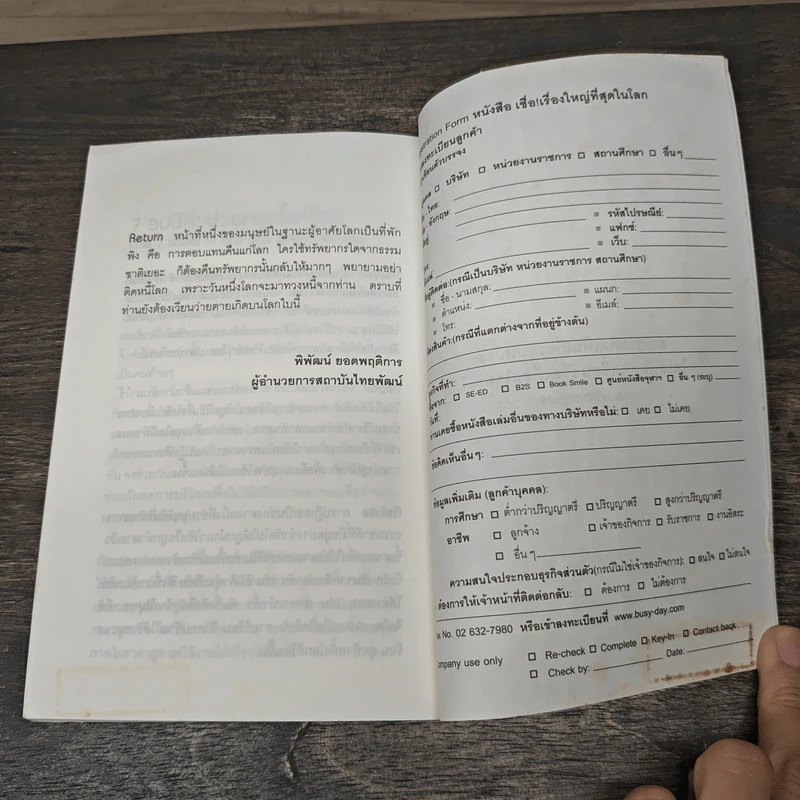 Return หน้าที่หนึ่งของมนุษย์ในฐานะผู้อาศัยโลกเป็นที่พัก
พิง คือ การตอบแทนคืนแก่โลก ใครใช้ทรัพยากรใดจากธรรม
ชาติเยอะ ก็ต้องคืนทรัพยากรนั้นกลับให้มากๆ พยายามอย่า
ติดหนี้โลก เพราะวันหนึ่งโลกจะมาทวงหนี้จากท่าน ตราบที่
ท่านยังต้องเวียนว่ายตายเกิดบนโลกใบนี้
พิพัฒน์ ยอดพฤติการ
ผู้อำนวยการสถาบันไทยพัฒน์
Form หนังสือ เชื่อ!เรื่องใหญ่ที่สุดในโลก
ลงทะเบียนลูกค้า
ตัวบรรจง
บริษัท หน่วยงานราชการ สถานศึกษา อื่นๆ
ไทย:
อังกฤษ:
รหัสไปรษณีย์:
แฟกซ์:
เว็บ:
ติดต่อ:(กรณีเป็นบริษัท หน่วยงานราชการ สถานศึกษา)
ชื่อ - นามสกุล: แผนก:
ตำแหน่ง: อีเมล์:
โทร:
สินค้า:(กรณีที่แตกต่างจากที่อยู่ข้างต้น)
ธุรกิจที่ทำ:
จาก: SE-ED B2S Book Smile ศูนย์หนังสือจุฬาฯ อื่น ๆ (ระบุ)
วันที่:
ท่านเคยซื้อหนังสือเล่มอื่นของทางบริษัทหรือไม่: เคย ไม่เคย
ข้อคิดเห็นอื่น ๆ:
ข้อมูลเพิ่มเติม (ลูกค้าบุคคล):
การศึกษา ต่ำกว่าปริญญาตรี ปริญญาตรี สูงกว่าปริญญาตรี
อาชีพ ลูกจ้าง เจ้าของกิจการ รับราชการ งานอิสระ
อื่น ๆ
ความสนใจประกอบธุรกิจส่วนตัว(กรณีไม่ใช่เจ้าของกิจการ): สนใจ ไม่สนใจ
ต้องการให้เจ้าหน้าที่ติดต่อกลับ: ต้องการ ไม่ต้องการ
No. 02 632-7980 หรือเข้าลงทะเบียนที่ www.busy-day.com
use only Re-check Complete Key-In Contact back
Check by: Date: